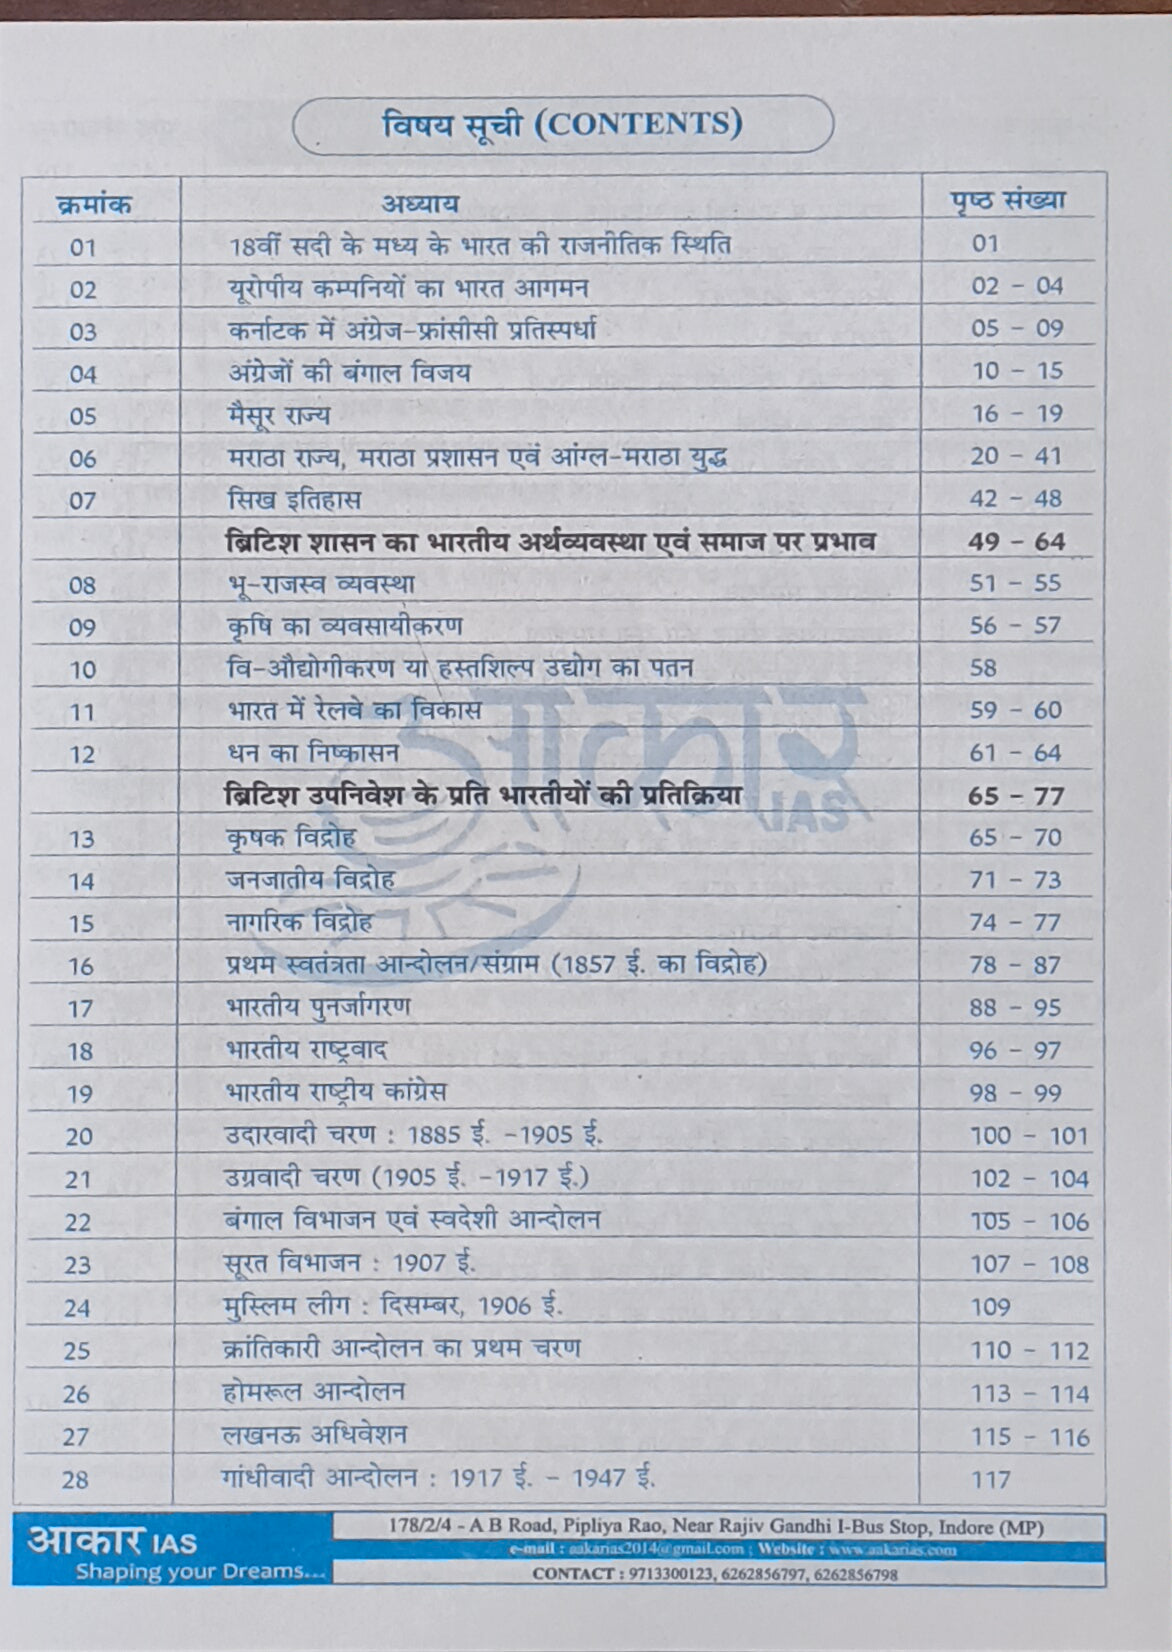 विषय सूची (CONTENTS)
क्रमांक अध्याय पृष्ठ संख्या
01 18वीं सदी के मध्य के भारत की राजनीतिक स्थिति 01
02 यूरोपीय कम्पनियों का भारत आगमन 02 - 04
03 कर्नाटक में अंग्रेज-फ्रांसीसी प्रतिस्पर्धा 05 - 09
04 अंग्रेजों की बंगाल विजय 10 - 15
05 मैसूर राज्य 16 - 19
06 मराठा राज्य, मराठा प्रशासन एवं आंग्ल-मराठा युद्ध 20 - 41
07 सिख इतिहास 42 - 48
ब्रिटिश शासन का भारतीय अर्थव्यवस्था एवं समाज पर प्रभाव 49 - 64
08 भू-राजस्व व्यवस्था 51 - 55
09 कृषि का व्यवसायीकरण 56 - 57
10 वि-औद्योगीकरण या हस्तशिल्प उद्योग का पतन 58
11 भारत में रेलवे का विकास 59 - 60
12 धन का निष्कासन 61 - 64
ब्रिटिश उपनिवेश के प्रति भारतीयों की प्रतिक्रिया 65 - 77
13 कृषक विद्रोह 65 - 70
14 जनजातीय विद्रोह 71 - 73
15 नागरिक विद्रोह 74 - 77
16 प्रथम स्वतंत्रता आन्दोलन/संग्राम (1857 ई. का विद्रोह) 78 - 87
17 भारतीय पुनर्जागरण 88 - 95
18 भारतीय राष्ट्रवाद 96 - 97
19 भारतीय राष्ट्रीय कांग्रेस 98 - 99
20 उदारवादी चरण : 1885 ई. -1905 ई. 100 - 101
21 उग्रवादी चरण (1905 ई. -1917 ई.) 102 - 104
22 बंगाल विभाजन एवं स्वदेशी आन्दोलन 105 - 106
23 सूरत विभाजन : 1907 ई. 107 - 108
24 मुस्लिम लीग : दिसम्बर, 1906 ई. 109
25 क्रांतिकारी आन्दोलन का प्रथम चरण 110 - 112
26 होमरूल आन्दोलन 113 - 114
27 लखनऊ अधिवेशन 115 - 116
28 गांधीवादी आन्दोलन : 1917 ई. - 1947 ई. 117
आकार IAS
आकार IAS
Shaping your Dreams...
178/2/4 - A B Road, Pipliya Rao, Near Rajiv Gandhi I-Bus Stop, Indore (MP)
e-mail : aakarias2014@gmail.com ; Website : www.aakarias.com
CONTACT : 9713300123, 6262856797, 6262856798